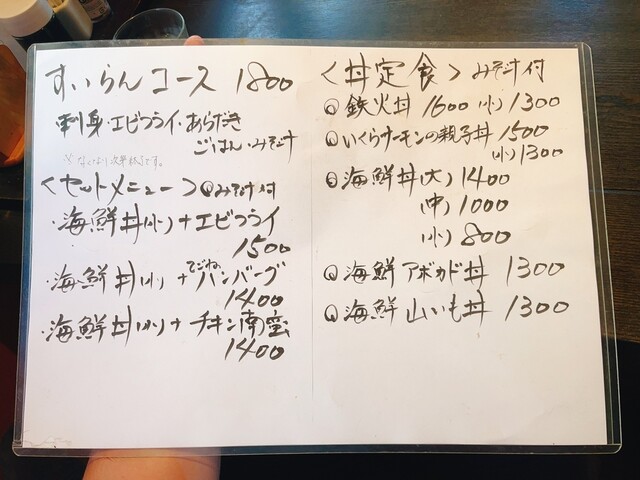 すいらんコース 1800
刺身・エビフライ・あらだき
ごはん・みそ汁
※なくなり次第終了です。
<セットメニュー>◎みそ汁付
・海鮮丼(小)+エビフライ
1500
・海鮮丼(小)+てごねハンバーグ
1400
・海鮮丼(小)+チキン南蛮
1400
<丼定食>みそ汁付
◎鉄火丼 1600 (小)1300
◎いくらサーモンの親子丼 1500
(小)1300
◎海鮮丼(大)1400
(中)1000
(小)800
◎海鮮アボカド丼 1300
◎海鮮山いも丼 1300